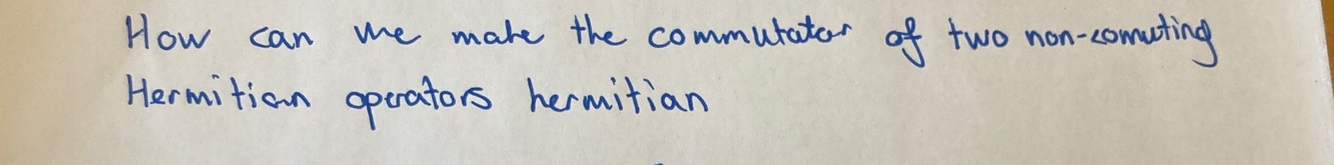 How can we make the commutator of two non-comuting
Hermitian operators hermitian